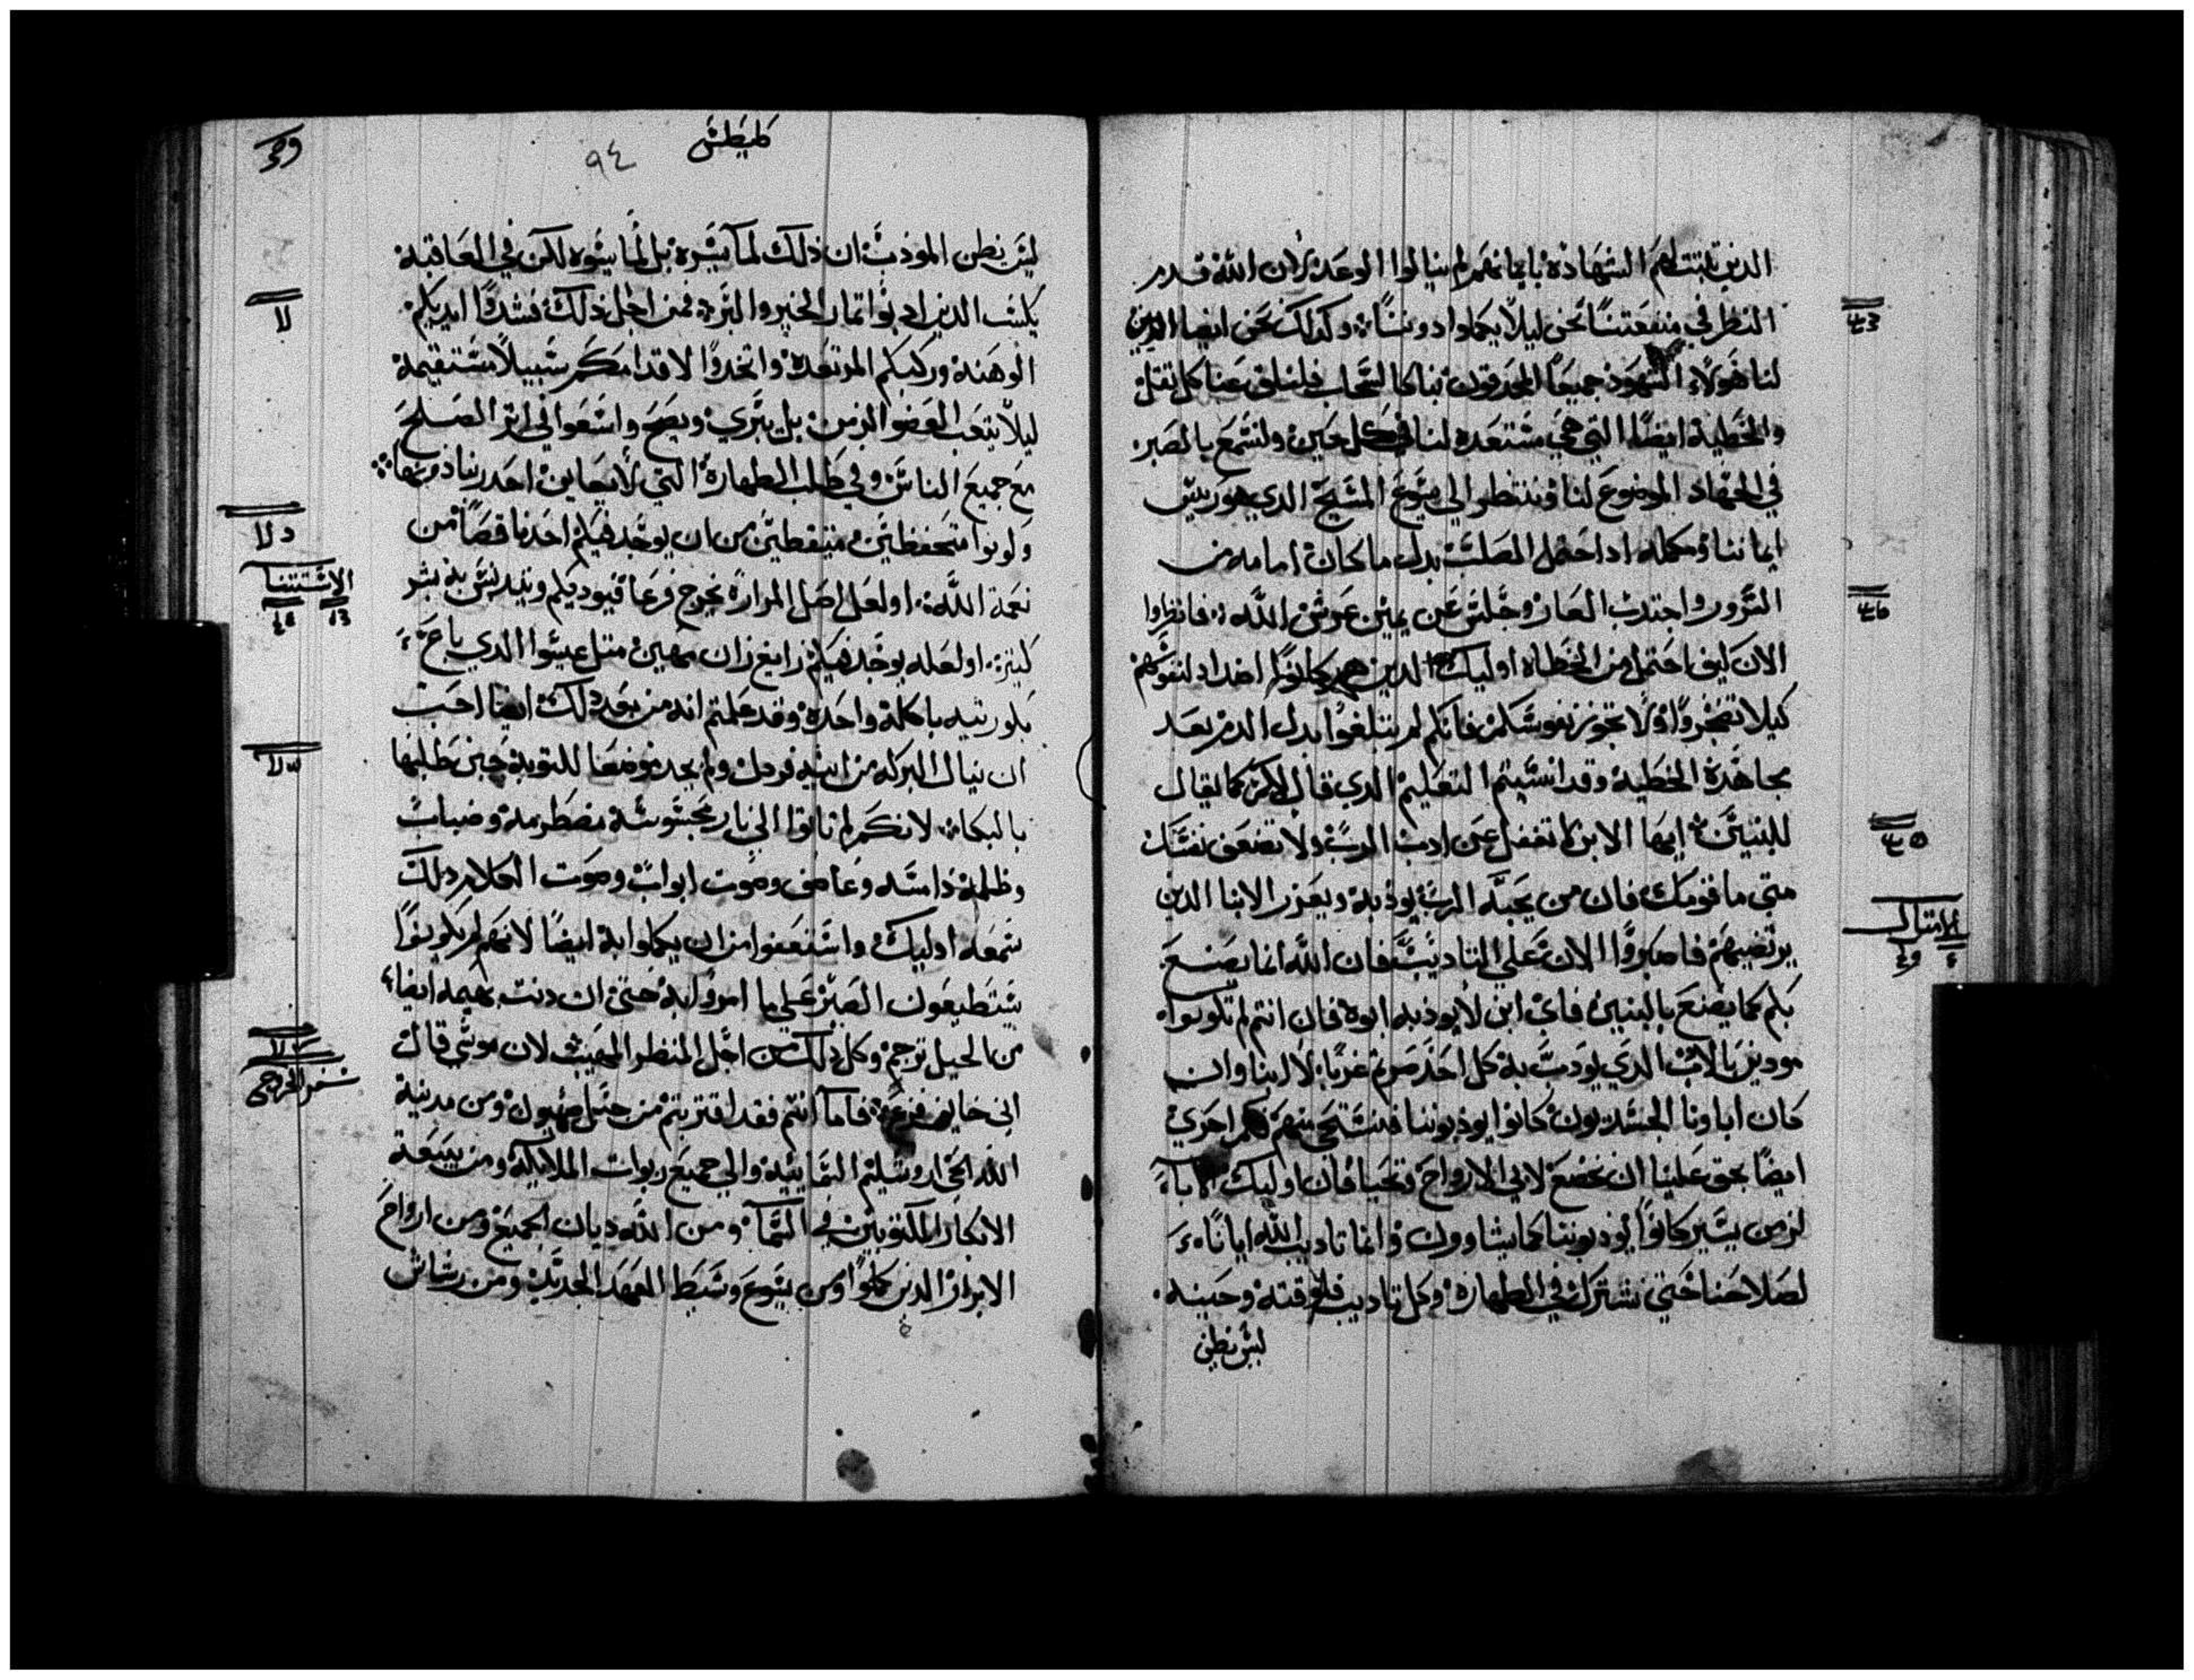 الذين ثبتت لهم الشهادة بايمانهم لم ينالوا الوعد لان الله قدم
النظر في منفعتنا نحن ليلا يكملوا دوننا وكذلك نحن ايضا الذين
لنا هولاء الشهود جميعا المحدقون بنا كالسحاب فلنلق عنا كل ثقل
والخطية ايضا التي هي مستعدة لنا في كل حين ولنسع بالصبر
في الجهاد الموضوع لنا وننظر الي يسوع المسيح الدي هو رييس
ايماننا ومكمله ادا احتمل الصلب بدل ما كان امامه من
السرور واجتدب العار وجلس عن يمين عرش الله فانظروا
الان كيف احتمل من الخطاه اوليك الدين هم كانوا اضداد لنفوسهم
كيلا تضجروا ولا تخور نفوسكم فانكم لم تبلغوا بدل الدم بعد
مجاهدة الخطية وقد انسيتم التعليم الدي قال لكم كما يقال
للبنين ايها الابن لا تغفل عن ادب الرب ولا تضعف نفسك
متي ما قومك فان من يحبه الرب يودبه ويعزر الابنا الدين
يرتضيهم فاصبروا الان علي التاديب فان الله انما يصنع
بكم كما يصنع بالبنين فاي ابن لا يودبه ابوه فان انتم لم تكونوا
مودبين بالادب الدي يودب به كل احد صرتم غربا لا ابنا وان
كان اباونا الجسديون كانوا يودبوننا فنستحي منهم فكم احري
ايضا يحق علينا ان نخضع لابي الارواح ونحيا فان اوليك الابا
لزمن يسير كانوا يودبوننا كما يشاوون وانما تاديب الله ايانا
لصلاحنا حتي نشترك في الطهارة وكل تاديب في وقته وحينه
ليس نظن
كليطس
٩٤
ليس نظن المودب ان دلك لما يسره بل لما يسوه لكن في العاقبة
يكسب الدين ادبوا اثمار الخير والبر فمن اجل دلك فشددوا ايديكم
الوهنة وركبكم المرتعدة واتخدوا لاقدامكم سبيلا مستقيمة
ليلا يتعب العضو الزمن بل يبري ويصح واسعوا في اثر الصلح
مع جميع الناس وفي طلب الطهارة التي لا يعاين احد ربنا دونها
وكونوا متحفظين متيقظين من ان يوجد فيكم احد ناقصا من
نعمة الله او لعل اصل المرارة يخرج فرعا فيوديكم ويتدنس به بشر
كثير او لعله يوجد فيكم زان مهين مثل عيسوا الدي باع
بكوريته باكلة واحدة وقد علمتم انه من بعد دلك ايضا احب
ان ينال البركه من ابيه فردل ولم يجد موضعا للتوبة حين طلبها
بالبكا لانكم لم تاتوا الي نار محسوسة مضطرمة وضباب
وظلمة دامسه وعاصف وصوت ابواب وصوت الكلام دلك
سمعه اوليك واستعفوا من ان يكلموا به ايضا لانهم لم يكونوا
يستطيعون الصبر علي ما امروا به حتي ان دنت بهيمه ايضا
من الجبل ترجم وكل دلك من اجل المنظر المهيب لان موسي قال
اني خايف فزع فاما انتم فقد اقتربتم من جبل صهيون ومن مدينة
الله الحي اورشليم السماييه والي جميع ربوات الملايكة ومن بيعة
الابكار المكتوبين في السما ومن الله ديان الجميع ومن ارواح
الابرار الدين كملوا ومن يسوع وسيط العهد الجديد ومن رشاش
الاستتنا
سفر الخروج
الامتال